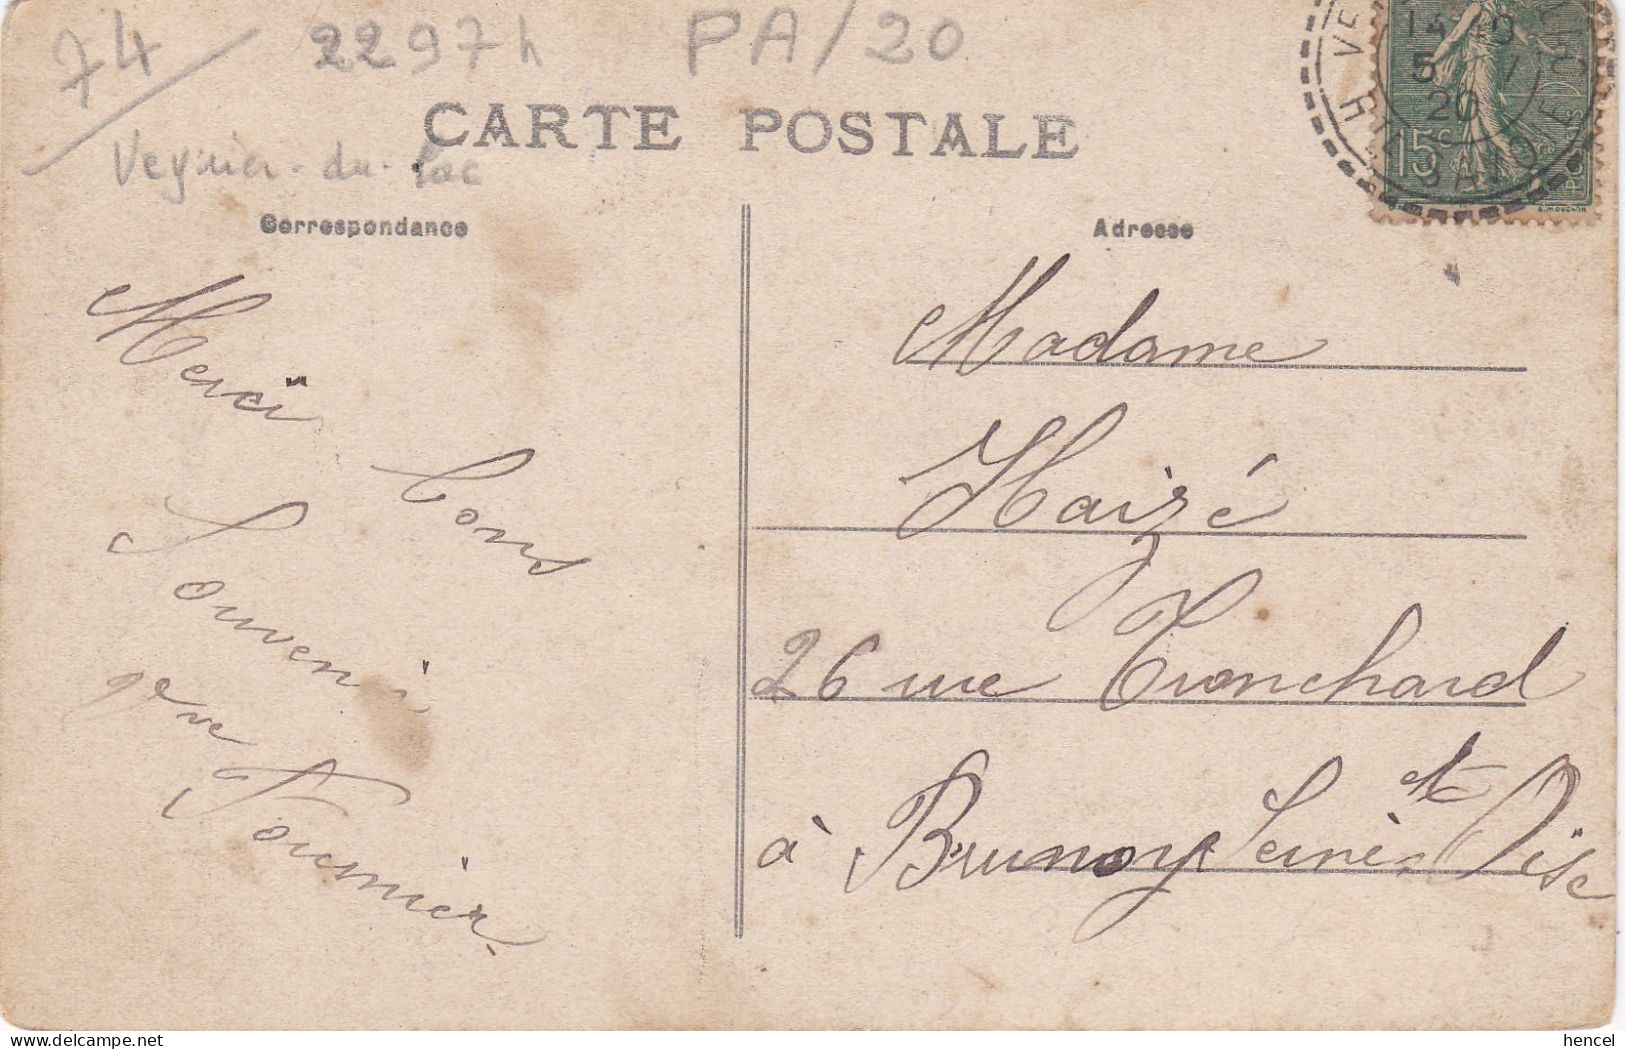 74 2297h PA/20
CARTE POSTALE
Veyrier-du-Lac
Correspondance
Adresse
14 40
5
20
HTE SAVOIE
15c
Merci
bons
Souvenir
gve
Fournier
Madame
Haizé
26 rue Tronchard
à Brunoy Seine et Oise
hencel